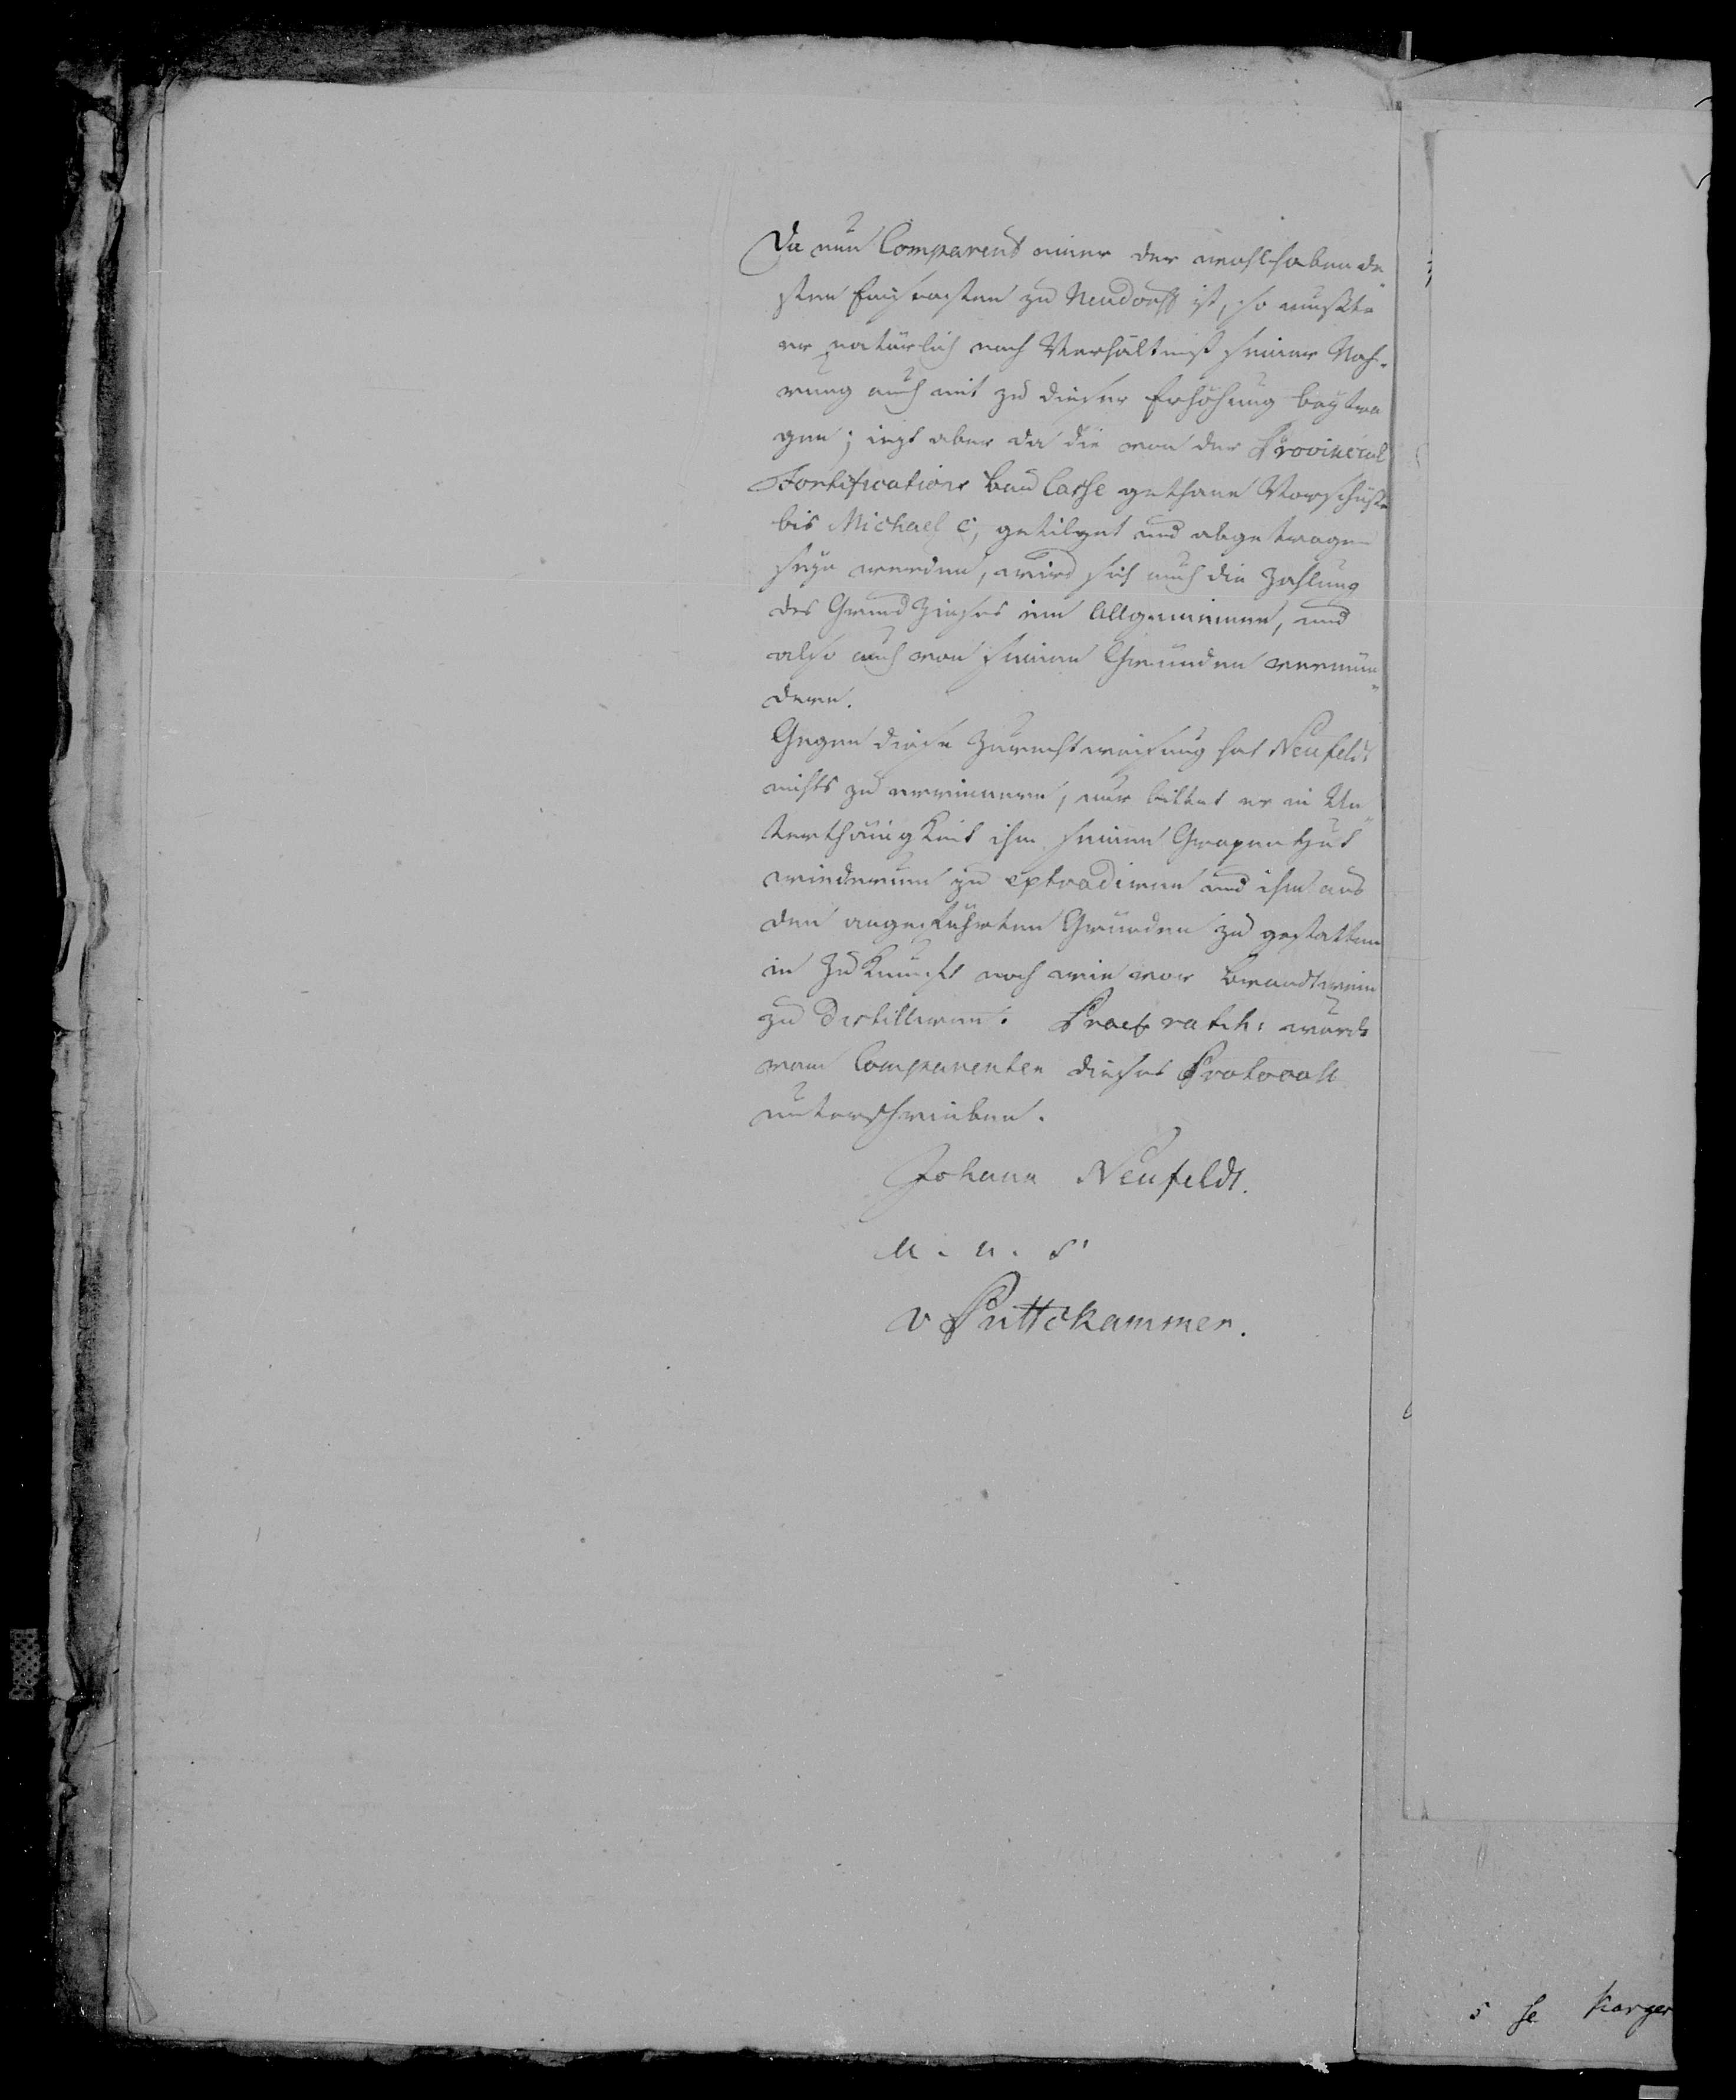 Da nun Comparent einer der wohlhabende
sten Einsaaßen zu Neudorff ist, so mußte
er natürlich nach Verhältniß seiner Nah-
rung auch mit zu dieser Erhöhung beytra
gen; iezt aber da die von der Provincial
Fortifications Bau Casse gethane Vorschüße
bis Michael c, getilget und abgetragen
seyn werden, wird sich auch die Zahlung
des Grund Zinses im Allgemeinen, und
also auch von seinen Gründen vermin„
dern.
Gegen diese Zurechtweisung hat Neufeldt
nichts zu erinnern, nur bittet er in Un„
terthänigkeit ihm seinen Grapen Hut
wiederum zu extradiren und ihm aus
den angeführten Gründen zu gestatten
in Zukunft nach wie vor Brandtwein
zu distilliren. Praef ratih: wurde
vom Comparenten dieses Protocoll
unterschrieben.
Johann Neufeldt.
u. s.
v Puttckammer.